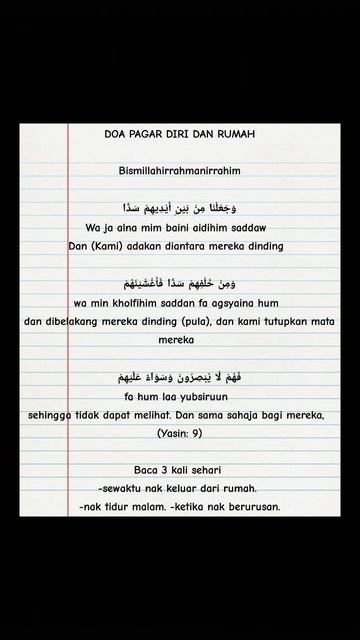 DOA PAGAR DIRI DAN RUMAH
Bismillahirrahmanirrahim
وَجَعَلْنَا مِنْ بَيْنِ أَيْدِيهِمْ سَدًّا
Wa ja alna mim baini aidihim saddaw
Dan (Kami) adakan diantara mereka dinding
وَمِنْ خَلْفِهِمْ سَدًّا فَأَغْشَيْنَهُمْ
wa min kholfihim saddan fa agsyaina hum
dan dibelakang mereka dinding (pula), dan kami tutupkan mata
mereka
فَهُمْ لَا يُبْصِرُونَ وَسَوَاءٌ عَلَيْهِمْ
fa hum laa yubsiruun
sehingga tidak dapat melihat. Dan sama sahaja bagi mereka,
(Yasin: 9)
Baca 3 kali sehari
-sewaktu nak keluar dari rumah.
-nak tidur malam. -ketika nak berurusan.